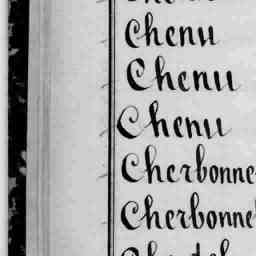 Chenu
Chenu
Chenu
Cherbonne
Cherbonne